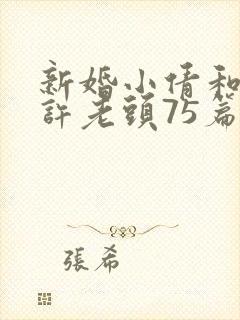 新婚小倩和
許老頭75篇
張希